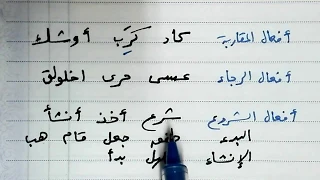 أفعال المقاربة كاد كَرَب أوشك
أفعال الرجاء عسى حرى اخلولق
أفعال الشروع شرع أخذ أنشأ
البدء جعل قام هب
الإنشاء بدأ